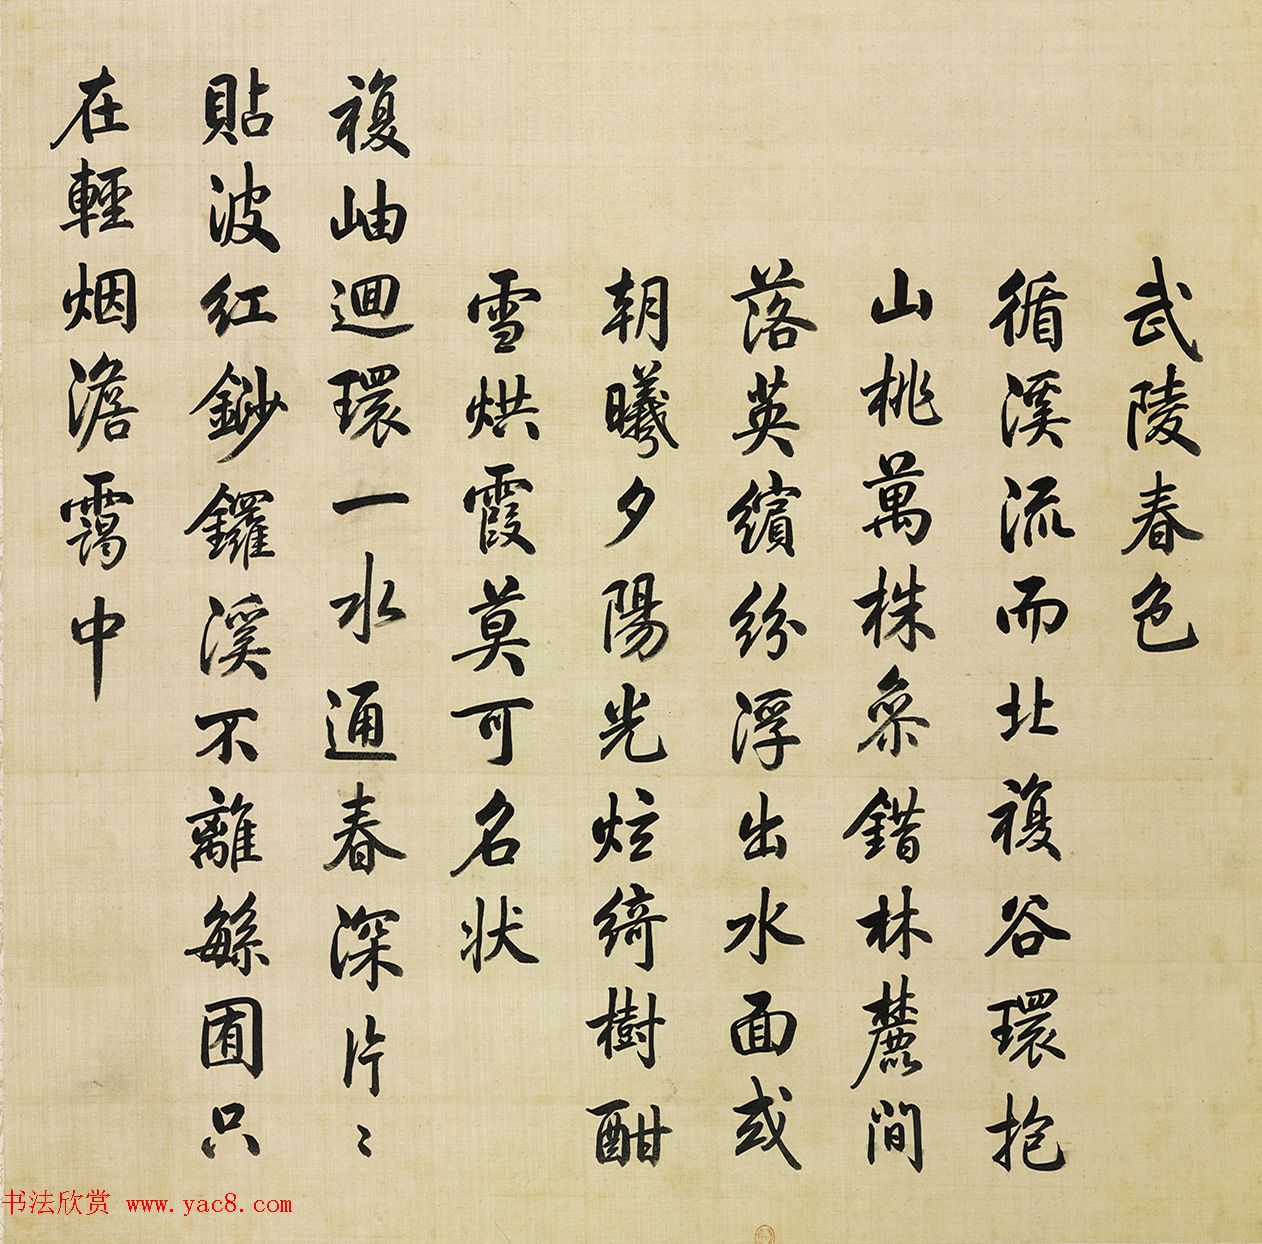 武陵春色
循溪流而北複谷環抱
山桃萬株叅錯林麓間
落英繽紛浮出水面或
朝曦夕陽光炫綺樹酣
雪烘霞莫可名狀
複岫迴環一水通春深片〻
貼波紅鈔鑼溪不離繇囿只
在輕烟澹靄中
书法欣赏 www.yac8.com